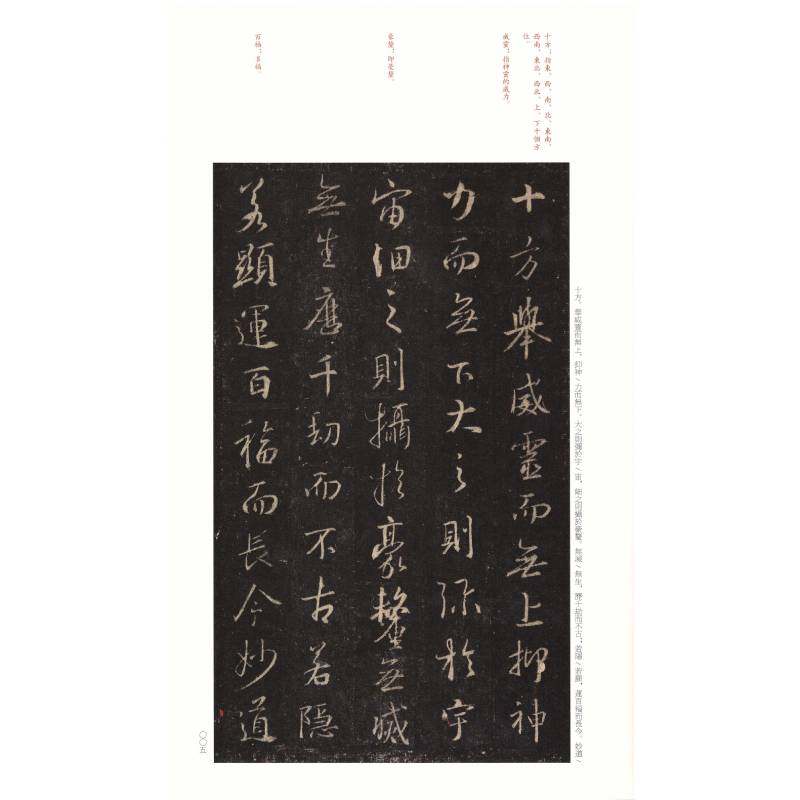 十方：指東、西、南、北、東南、
西南、東北、西北、上、下十個方
位。
威靈：指神靈的威力。
豪氂：即毫釐。
百福：多福。
十方舉威靈而無上抑神
力而無下大之則弥於宇
宙細之則攝於豪氂無滅
無生歷千劫而不古若隱
若顯運百福而長今妙道
十方，舉威靈而無上，抑神／力而無下。大之則彌於宇／宙，細之則攝於豪氂。無滅／無生，歷千劫而不古；若隱／若顯，運百福而長今。妙道／
〇〇五